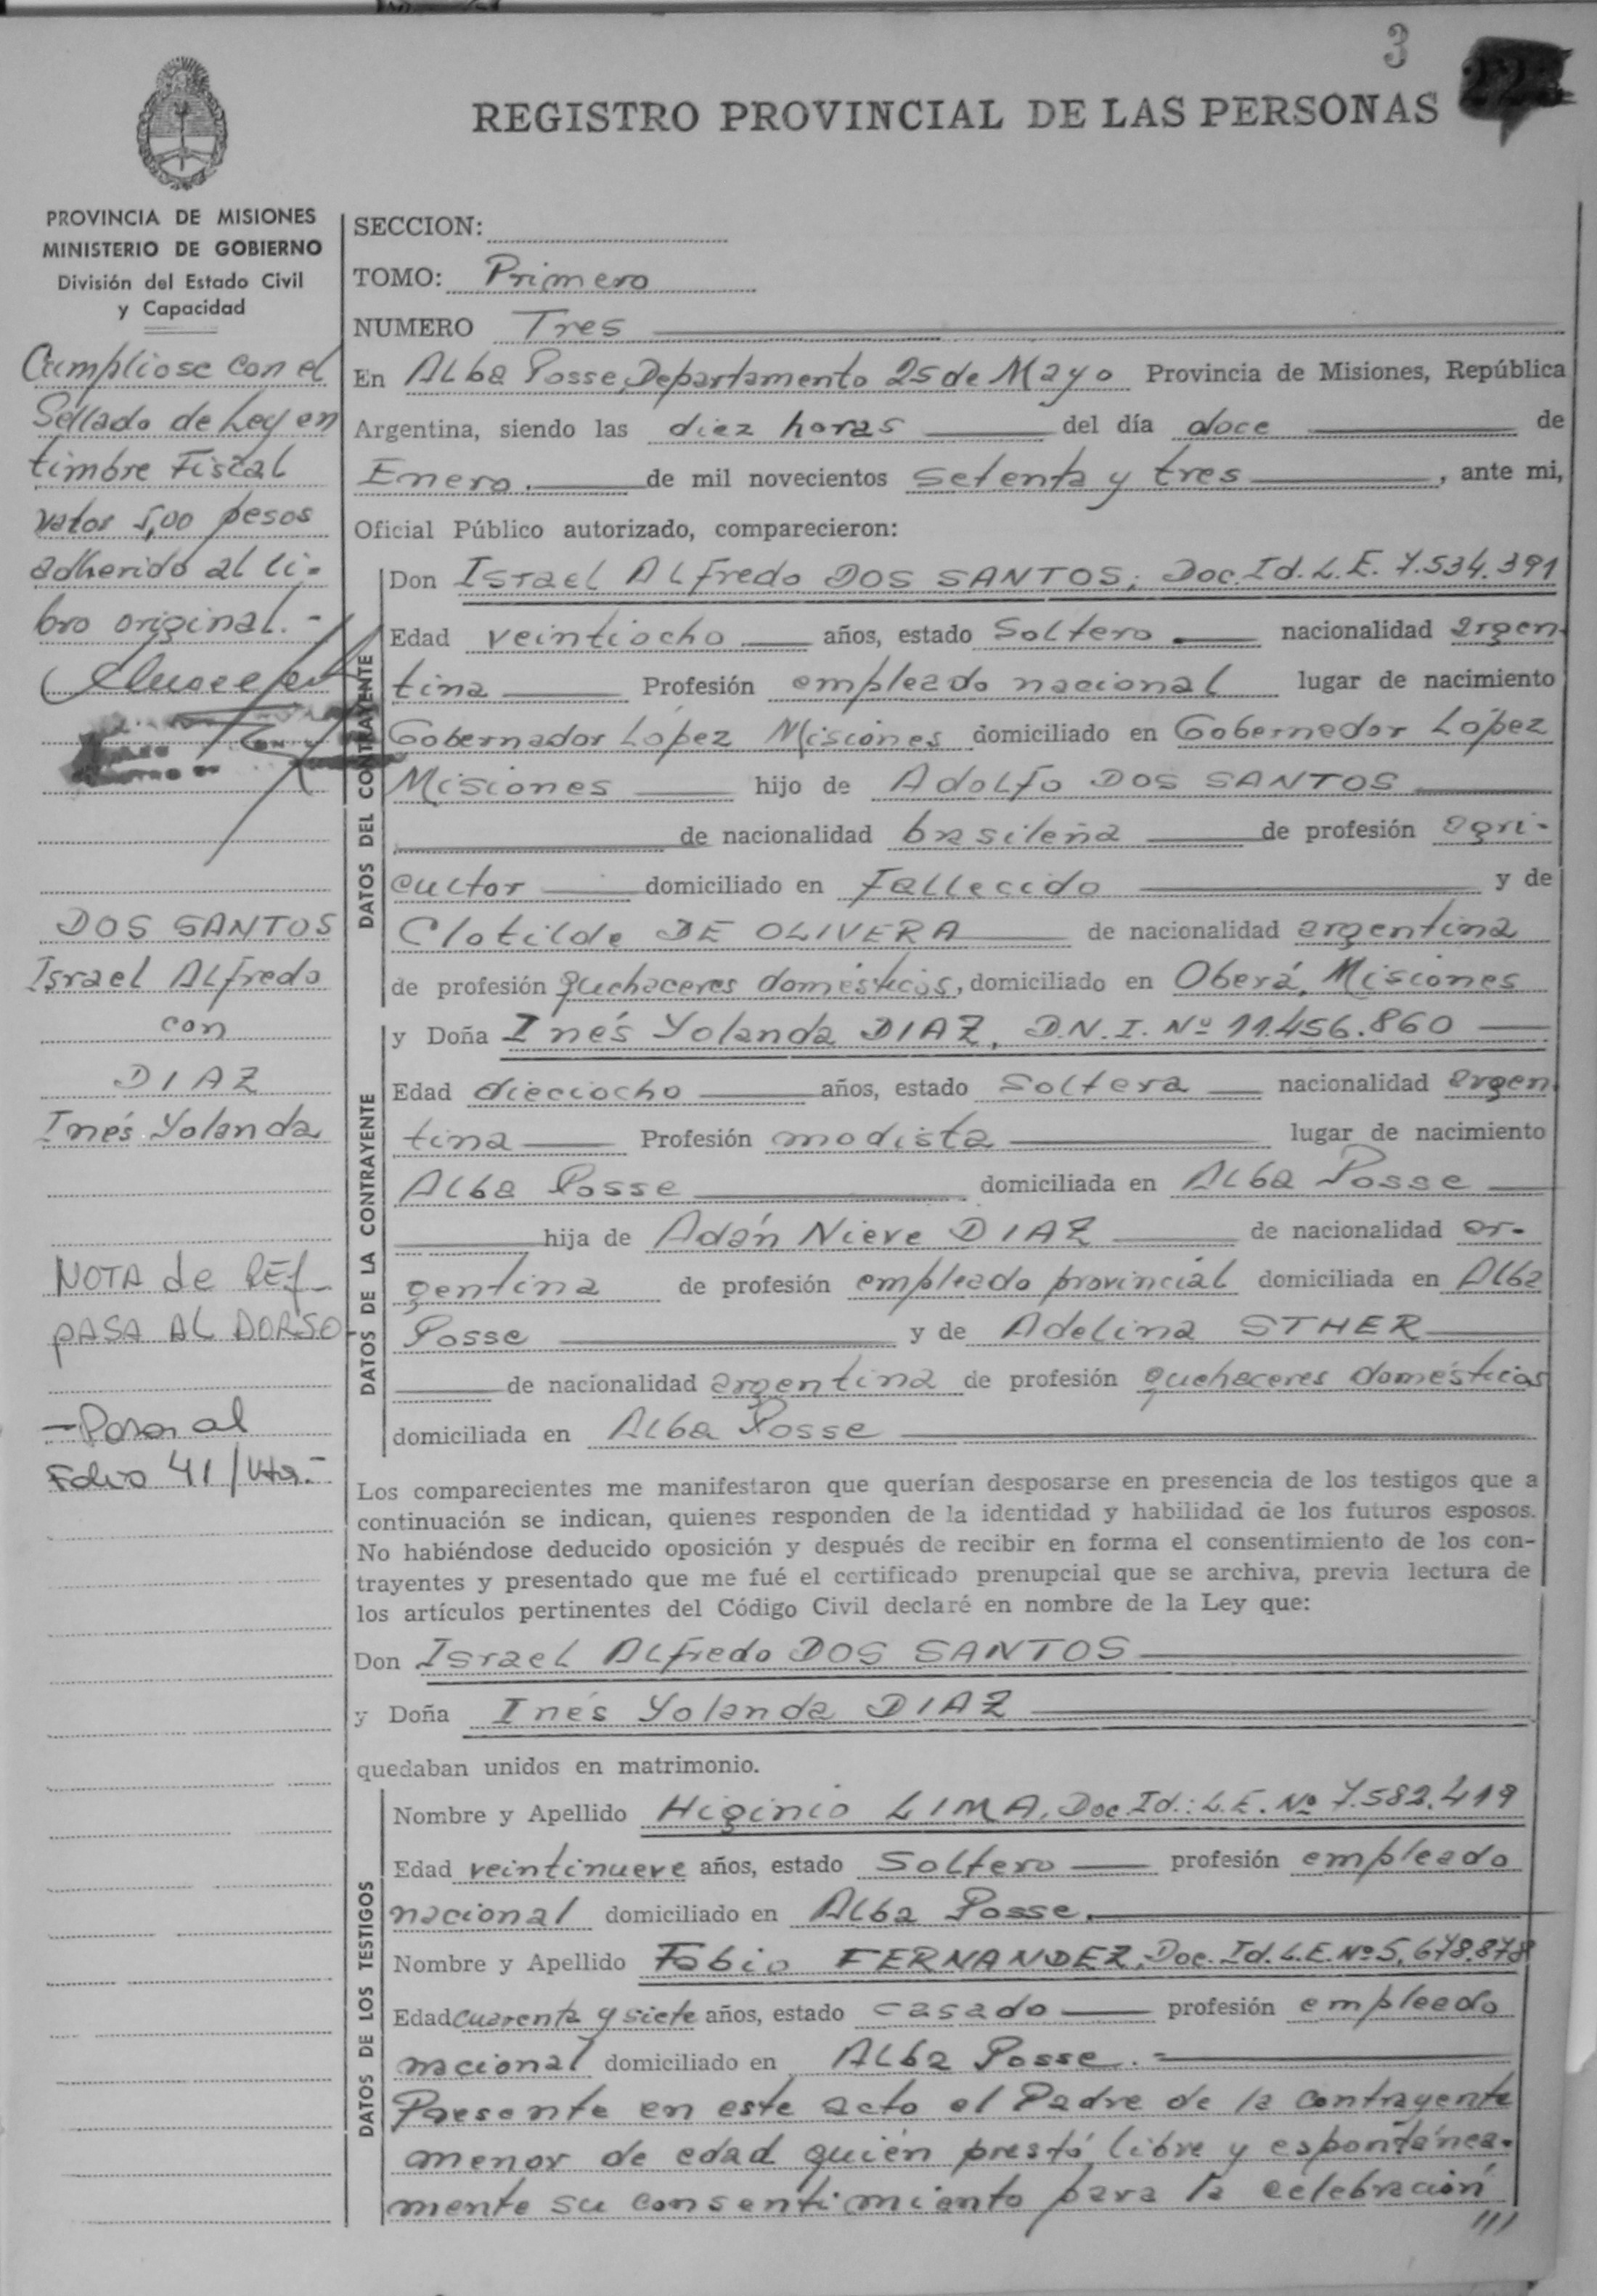 3
REGISTRO PROVINCIAL DE LAS PERSONAS
PROVINCIA DE MISIONES
MINISTERIO DE GOBIERNO
División del Estado Civil
y Capacidad
Cumpliose con el
Sellado de Ley en
timbre Fiscal
valor 5,00 pesos
adherido al li-
bro original.-
DOS SANTOS
Israel Alfredo
con
DIAZ
Inés Yolanda
NOTA de REf-
PASA AL DORSO
- Pasa al
Folio 41/Vta.-
SECCION:
TOMO: Primero
NUMERO Tres
En Alba Posse, Departamento 25 de Mayo Provincia de Misiones, República
Argentina, siendo las diez horas del día doce de
Enero. de mil novecientos setenta y tres, ante mi,
Oficial Público autorizado, comparecieron:
DATOS DEL CONTRAYENTE
Don Israel Alfredo DOS SANTOS, Doc. Id. L.E. 7.534.391
Edad veintiocho años, estado Soltero nacionalidad argen-
tina Profesión empleado nacional lugar de nacimiento
Gobernador López Misiones domiciliado en Gobernador López
Misiones hijo de Adolfo DOS SANTOS
de nacionalidad brasileña de profesión agri-
cultor domiciliado en Fallecido y de
Clotilde DE OLIVERA de nacionalidad argentina
de profesión quehaceres domésticos, domiciliado en Oberá, Misiones
DATOS DE LA CONTRAYENTE
y Doña Inés Yolanda DIAZ, D.N.I. Nº 11.456.860
Edad dieciocho años, estado Soltera nacionalidad argen-
tina Profesión modista lugar de nacimiento
Alba Posse domiciliada en Alba Posse
hija de Adán Nieve DIAZ de nacionalidad ar-
gentina de profesión empleado provincial domiciliada en Alba
Posse y de Adelina STHER
de nacionalidad argentina de profesión quehaceres domésticos
domiciliada en Alba Posse
Los comparecientes me manifestaron que querían desposarse en presencia de los testigos que a
continuación se indican, quienes responden de la identidad y habilidad de los futuros esposos.
No habiéndose deducido oposición y después de recibir en forma el consentimiento de los con-
trayentes y presentado que me fué el certificado prenupcial que se archiva, previa lectura de
los artículos pertinentes del Código Civil declaré en nombre de la Ley que:
Don Israel Alfredo DOS SANTOS
y Doña Inés Yolanda DIAZ
quedaban unidos en matrimonio.
DATOS DE LOS TESTIGOS
Nombre y Apellido Higinio LIMA, Doc. Id.: L.E. Nº 7.582.419
Edad veintinueve años, estado Soltero profesión empleado
nacional domiciliado en Alba Posse.
Nombre y Apellido Fabio FERNANDEZ, Doc. Id. L.E. Nº 5.678.878
Edad cuarenta y siete años, estado casado profesión empleado
nacional domiciliado en Alba Posse.=
Presente en este acto el Padre de la contrayente
menor de edad quién prestó libre y espontánea-
mente su consentimiento para la celebración
///